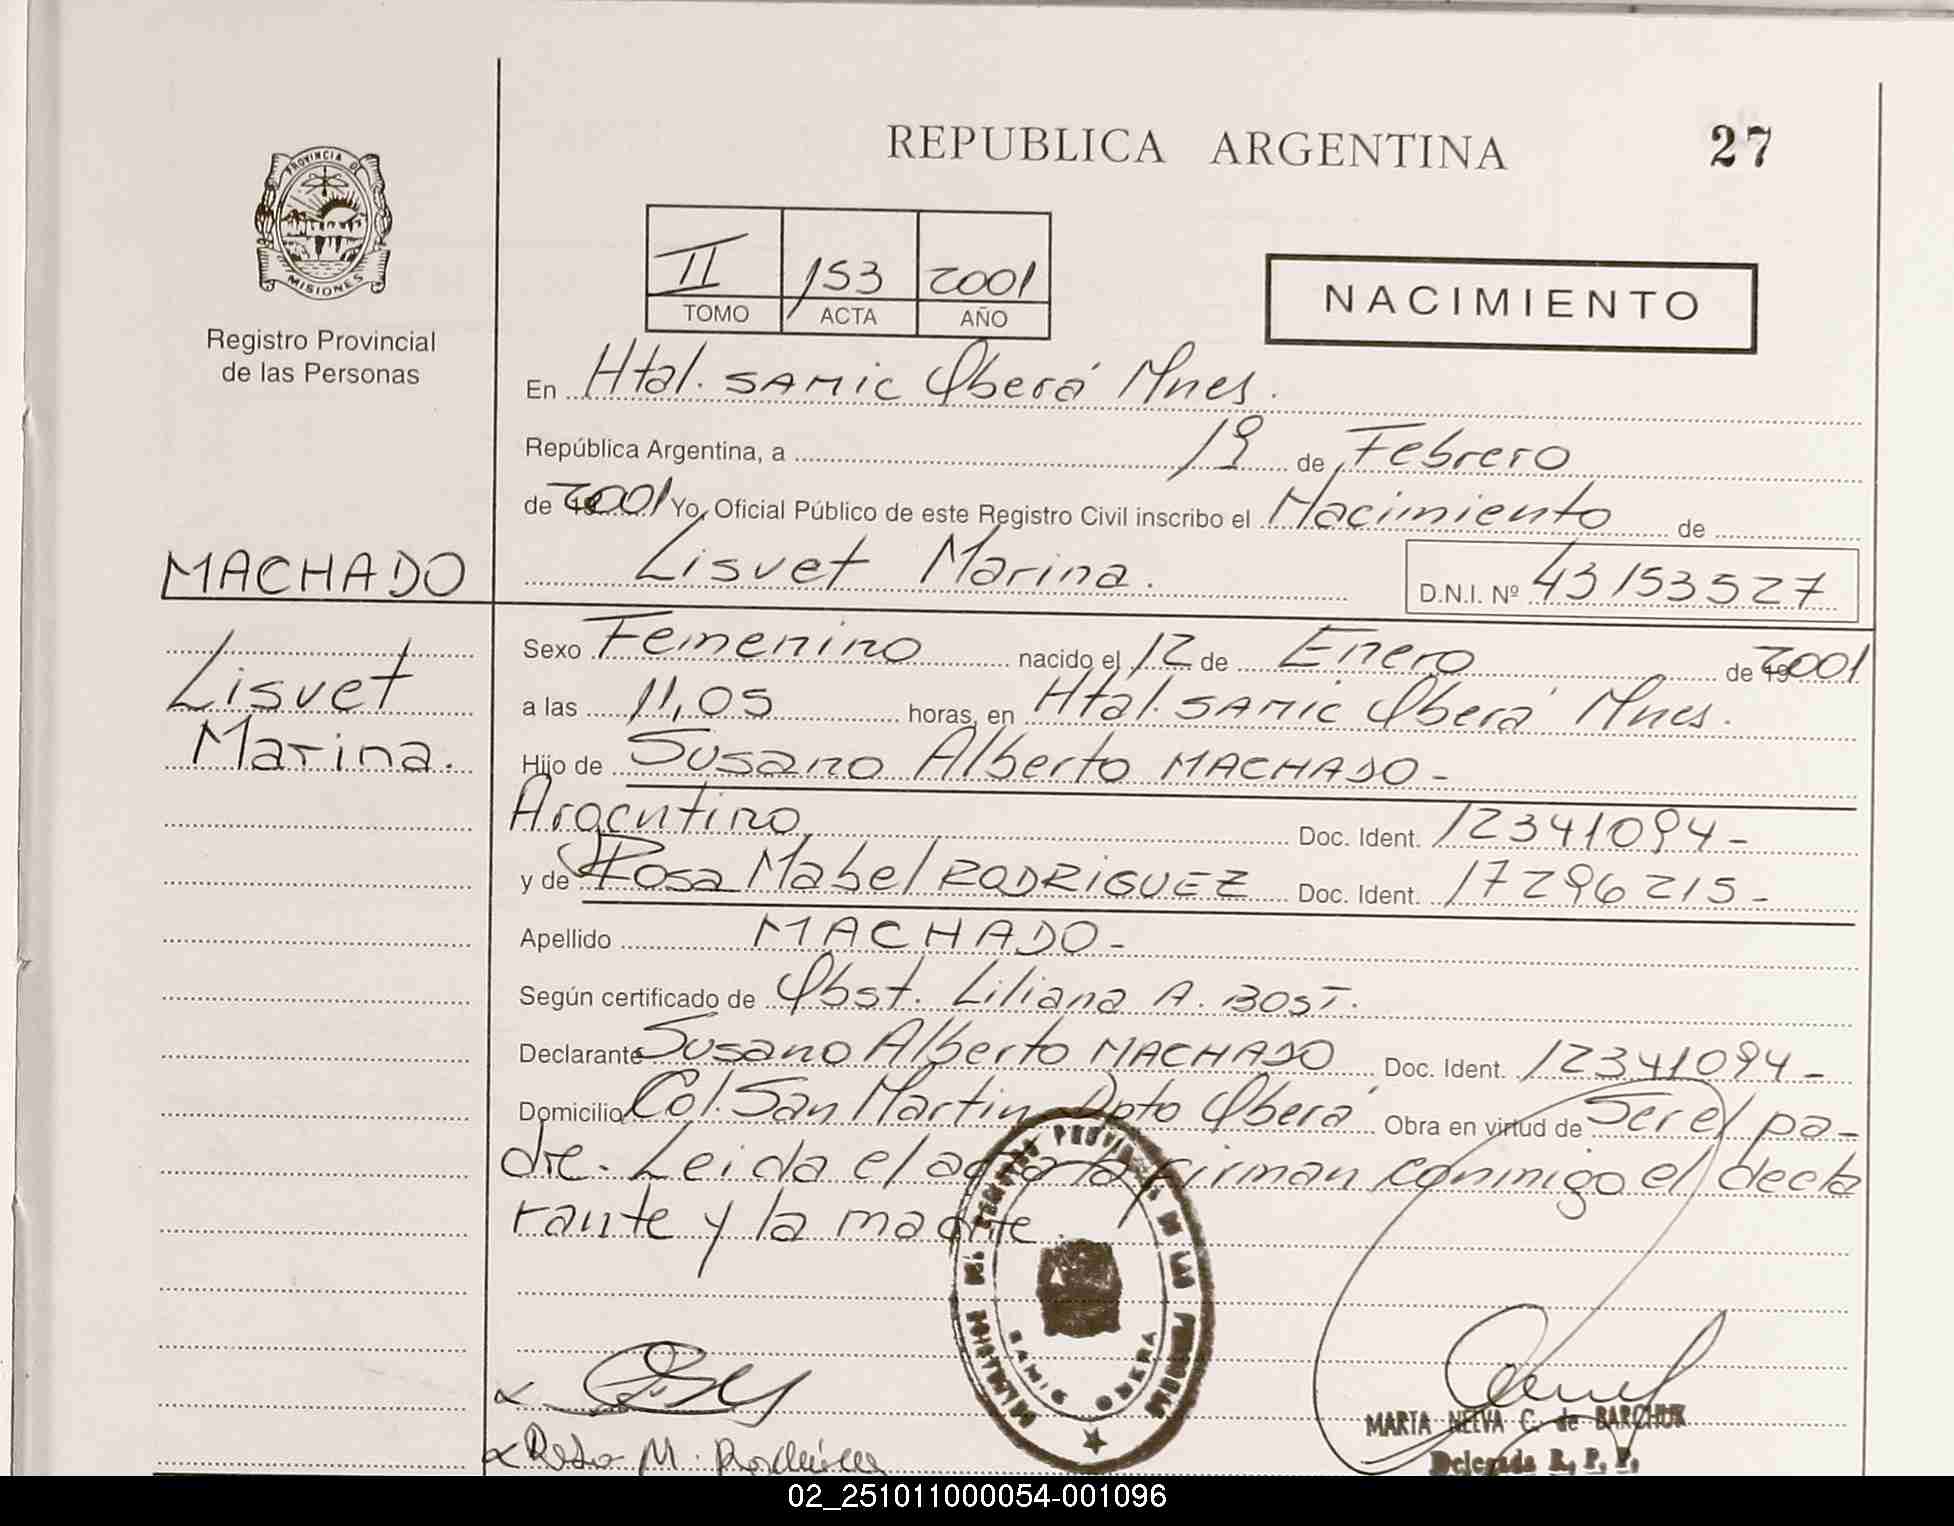 REPUBLICA ARGENTINA
27
PROVINCIA DE
MISIONES
Registro Provincial
de las Personas
II 153 2001
TOMO ACTA AÑO
NACIMIENTO
En Htal. SAMIC Oberá Mnes.
República Argentina, a 19 de Febrero
de 2001 Yo, Oficial Público de este Registro Civil inscribo el Nacimiento de
MACHADO
Lisvet Marina.
D.N.I. Nº 43153527
Lisvet
Marina.
Sexo Femenino nacido el 12 de Enero de 2001
a las 11,05 horas, en Htal. SAMIC Oberá Mnes.
Hijo de Susano Alberto MACHADO -
Argentino Doc. Ident. 12341094 -
y de Rosa Mabel RODRIGUEZ Doc. Ident. 17296215 -
Apellido MACHADO -
Según certificado de Obst. Liliana A. BOST.
Declarante Susano Alberto MACHADO Doc. Ident. 12341094 -
Domicilio Col. San Martin Dpto Oberá Obra en virtud de Ser el pa-
dre. Leida el acta la firman conmigo el decla
rante y la madre
SAMIC OBERA
MARTA NELVA C. de BARCHUK
Delegada R. P. P.
02_251011000054-001096